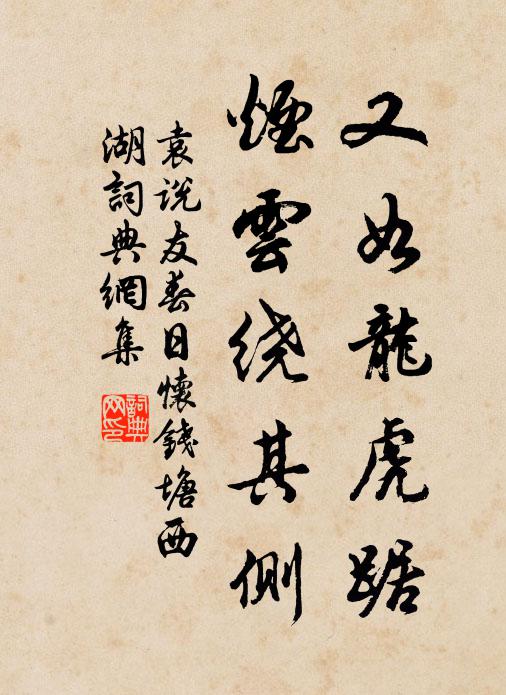 又如龍虎踞
煙雲绕其側
袁说友春日懷錢塘西
湖詞典網集
詞典網印